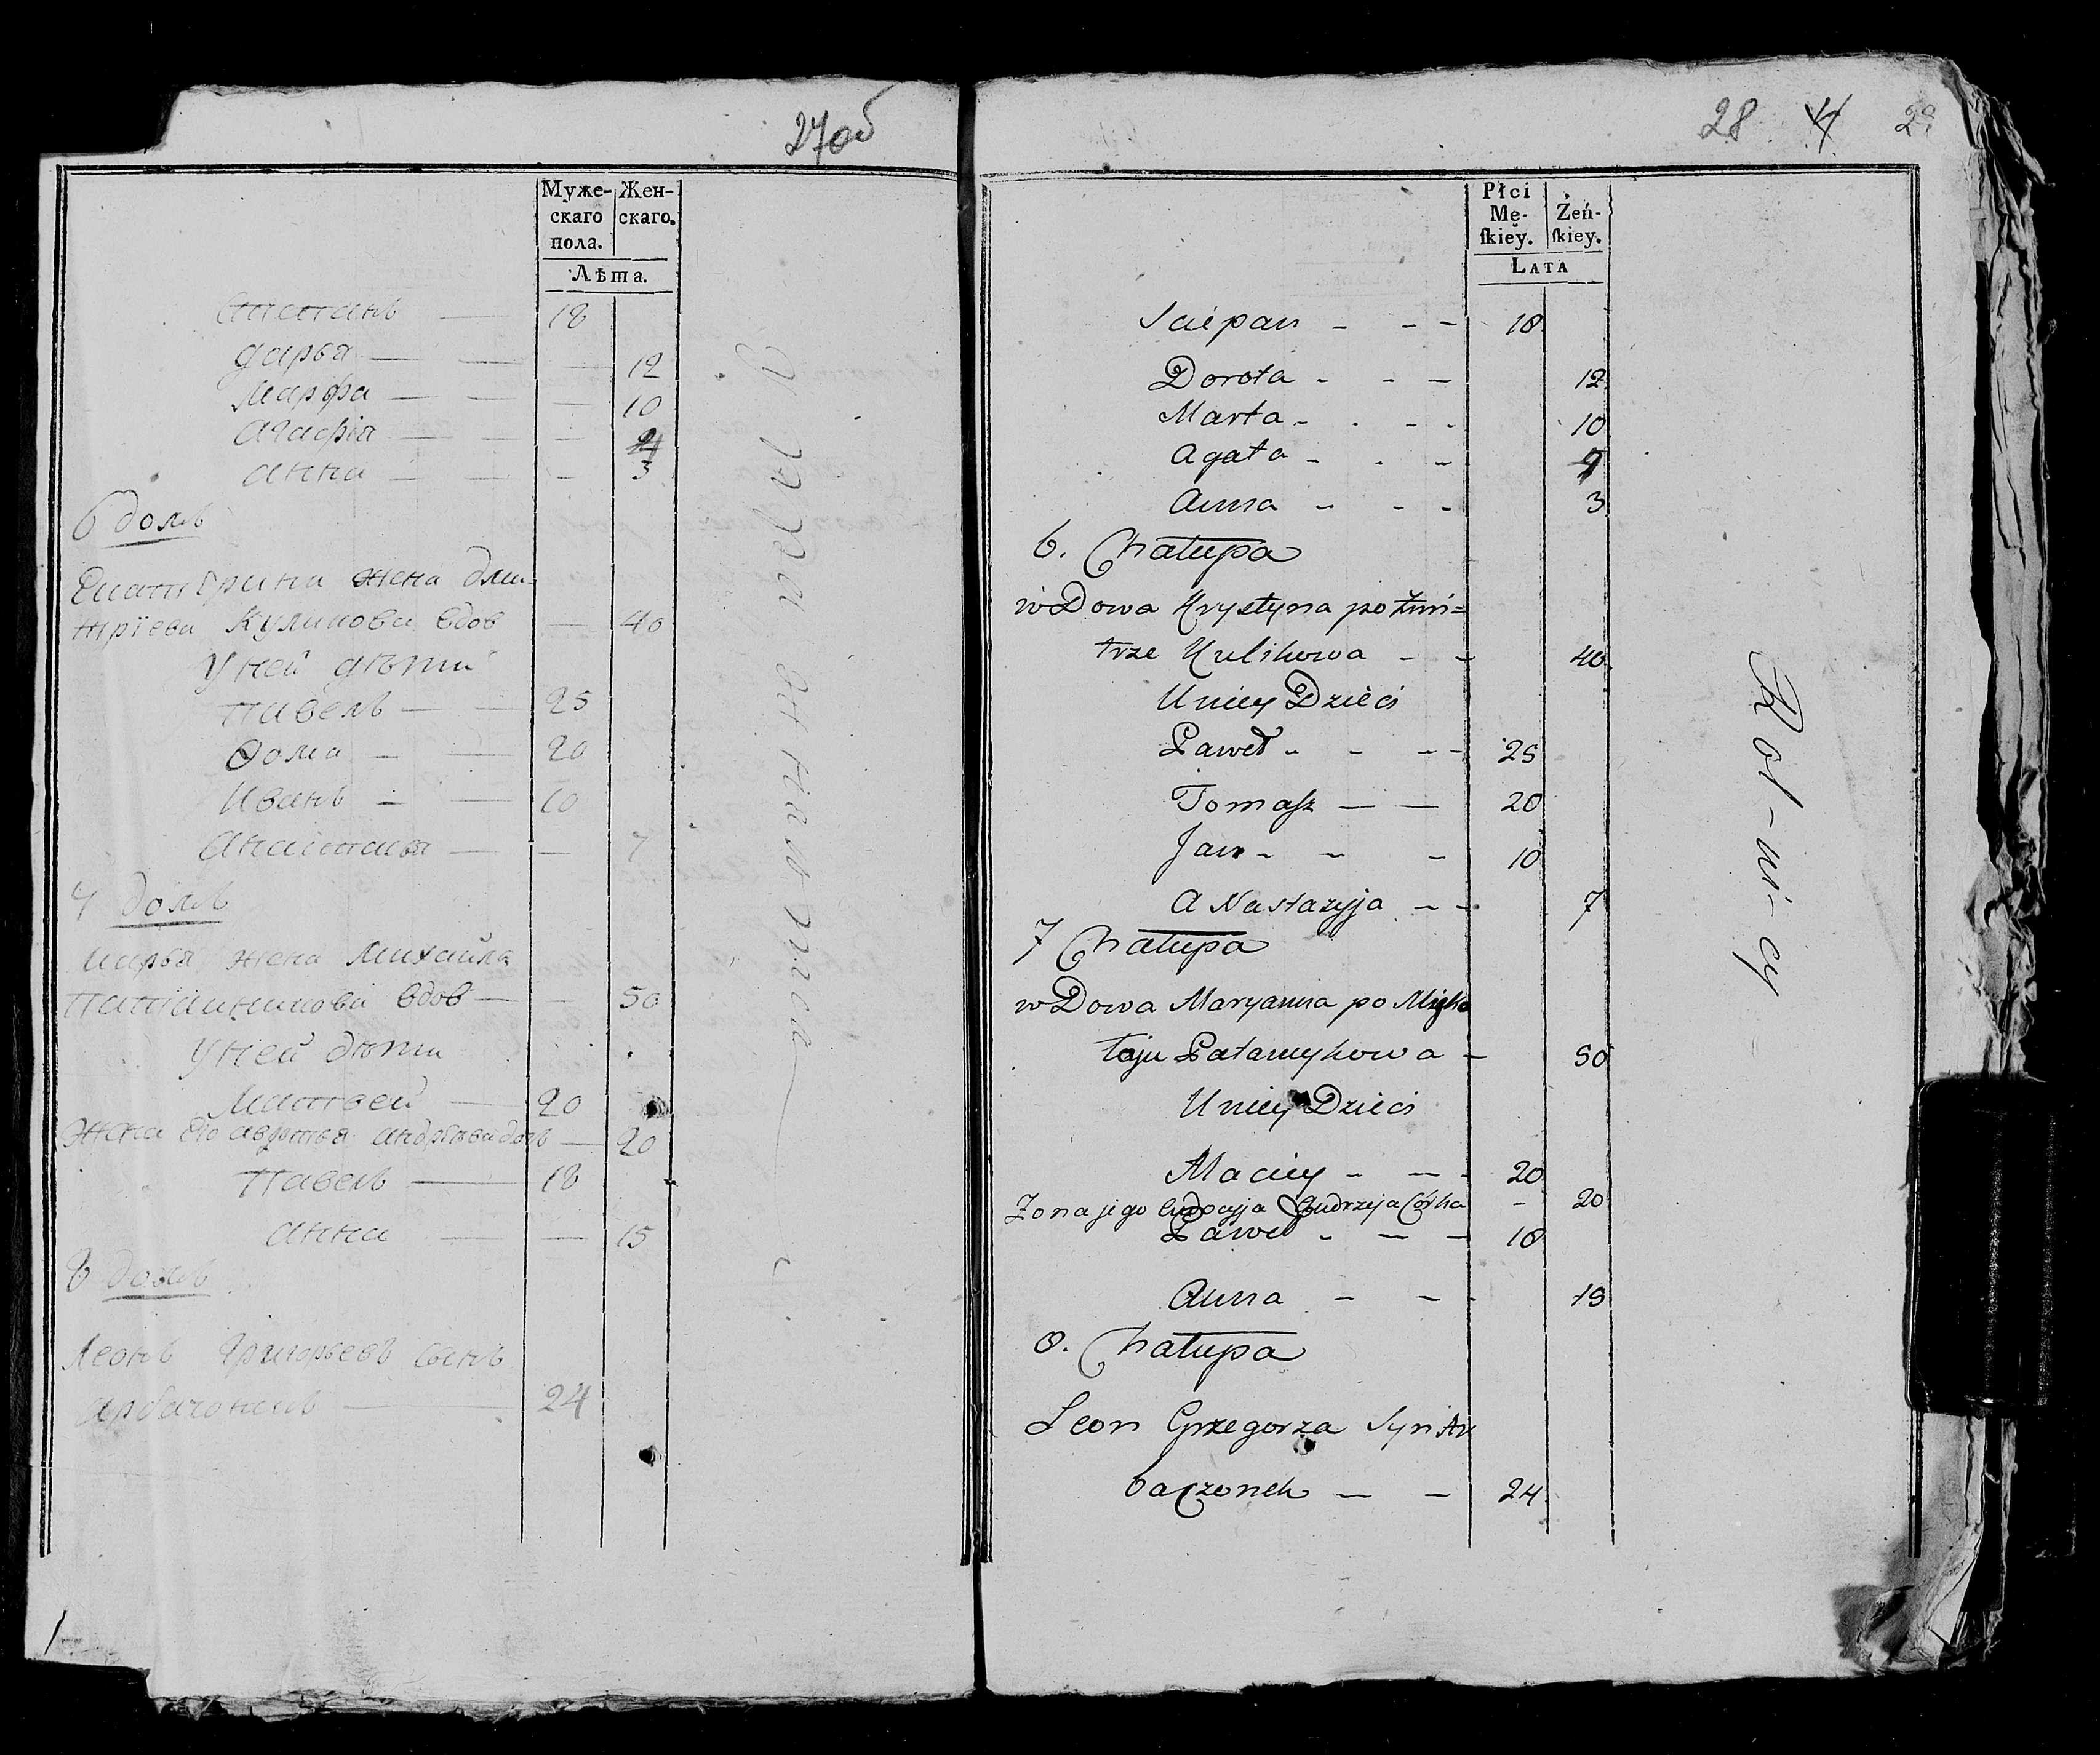 27об
Муже- Жен-
скаго скаго.
пола.
Лѣта.
Степанъ — 18
Дарья — — — 12
Марфа — — — 10
Агафія — — —
Анна — — — 3
6 домъ
Екатерина жена Дми-
тріева Куликова вдов — 40
У ней дѣти
Павелъ — — 25
Ѳома — — 20
Иванъ — — 10
Анастасья — — 7
7 домъ
Марья жена Михайла
вдов — — 50
У ней дѣти
Матвей — 20
Жена его Авдотья Андрѣева дочь — 20
Павелъ — 18
Анна — — 15
8 домъ
Леонъ Григорьевъ сынъ
Арбачонакъ — 24
28 29
Płci
Mę- Żeń-
ſkiey. ſkiey.
LATA
Sciepan - - - 18
Dorota - - - 12
Marta - - - - 10
Agata - - -
Anna - - - 3
6. Chałupa
wDowa Krystyna po Żmi=
trze Kulikowa - - 40
Uniey Dzieci
Paweł - - - - 25
Tomaſz — — 20
Jan - - - 10
A Nastazyja - - 7
7 Chałupa
wDowa Maryanna po Micha
łaju Patamykowa - 50
Uniey Dzieci
Maciey - - - 20
Zona jego Eudocyja Andrzeja Córka - 20
Paweł - - - 18
Anna - - - 15
8. Chałupa
Leon Grzegorza Syn Ar
baczonek — — 24
Rol-ni-cy